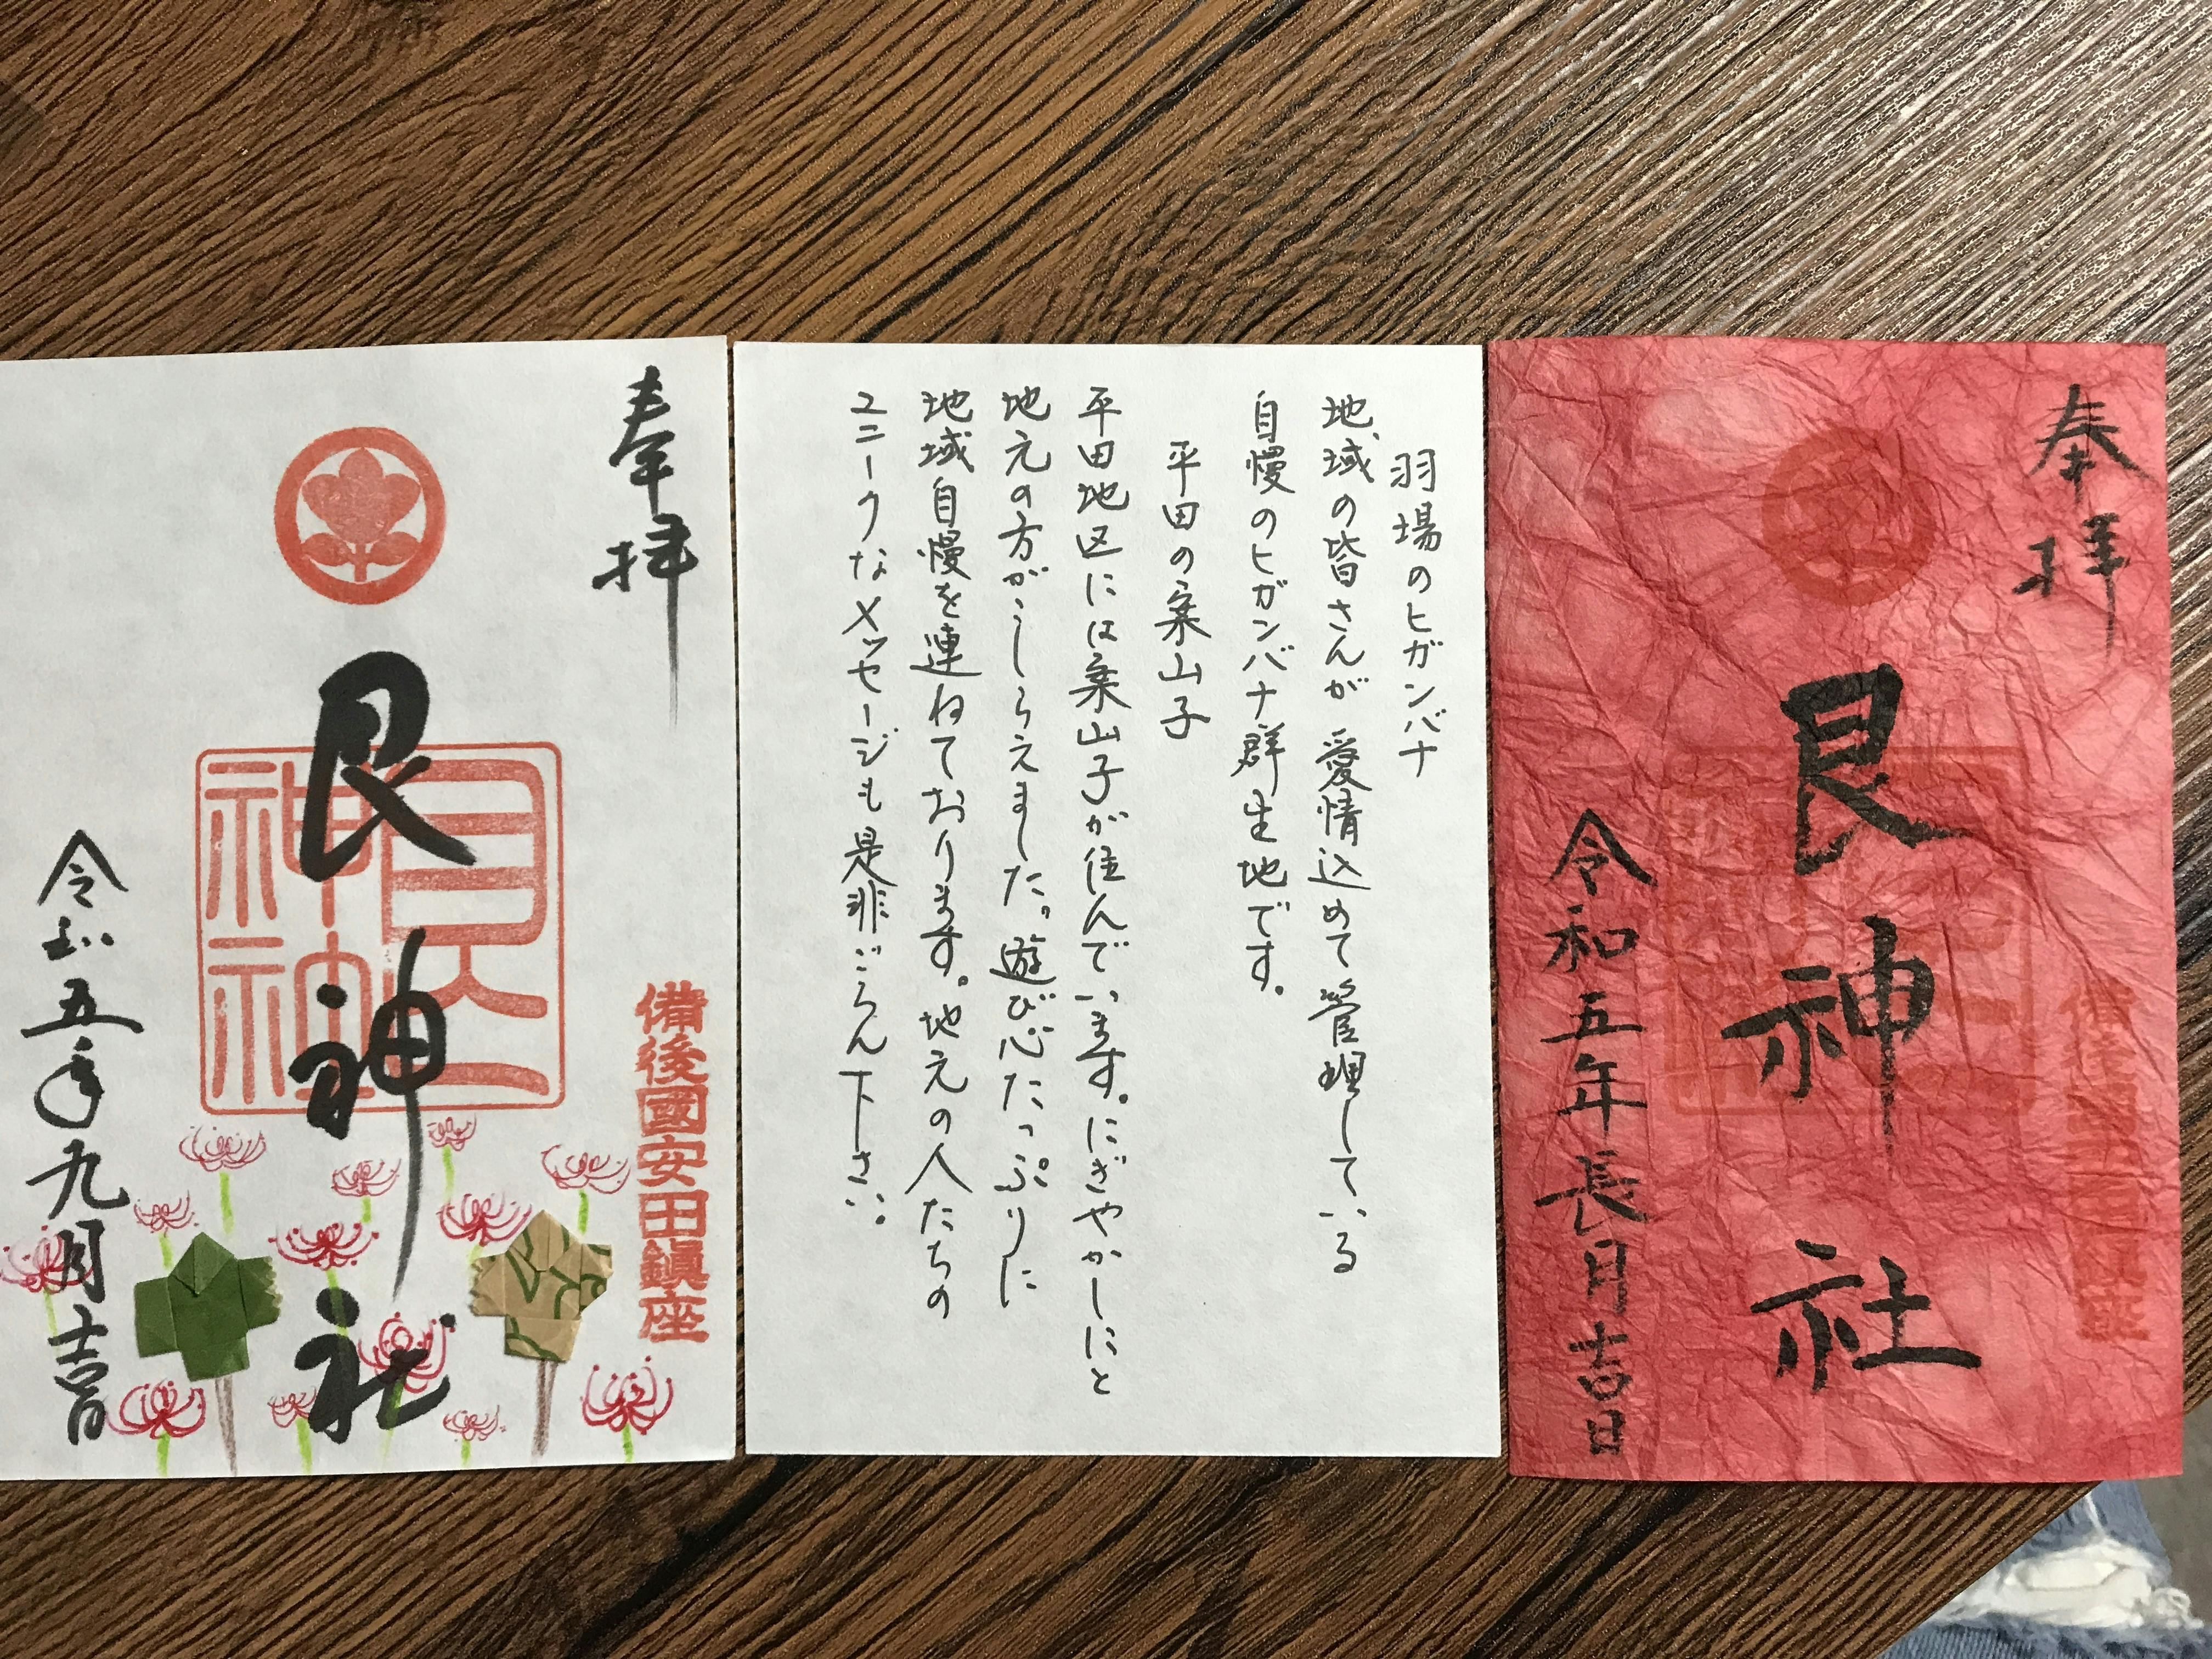 奉拝
艮神社
備後國安田鎮座
令和五年長月吉日
羽場のヒガンバナ
地域の皆さんが愛情込めて管理している
自慢のヒガンバナ群生地です。
平田の案山子
平田地区には案山子が住んでいます。にぎやかしにと
地元の方がこしらえました。遊び心たっぷりに
地域自慢を連ねております。地元の人たちの
ユニークなメッセージも是非ごらん下さい。
奉拝
艮神社
艮神社
備後國安田鎮座
令和五年九月吉日